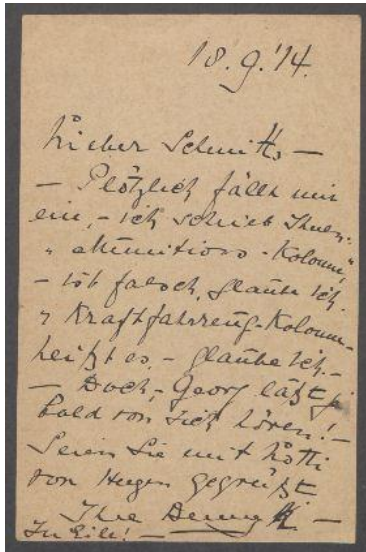 18.9.'14.
Lieber Schmitts —
— Plötzlich fällt mir
ein, — ich schrieb Ihnen:
„Munitions-Kolonne"
— ist falsch, glaube ich.
„Kraftfahrzeug-Kolonne
heißt es, — glaube ich. —
— Doch, Georg läßt ja
bald von sich hören! —
Seien Sie mit Lotti
von Herzen gegrüßt
Ihre
In Eile! —